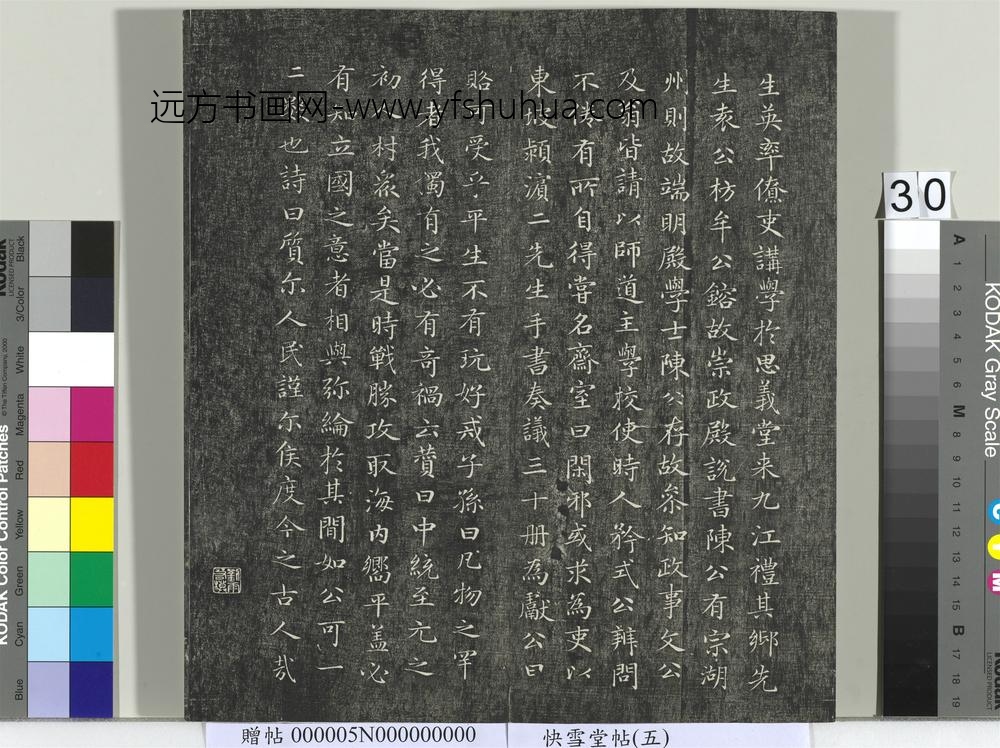 生英率僚吏講學於思義堂来九江禮其鄉先
生袁公枋牟公鎔故崇政殿說書陳公有宗湖
州則故端明殿學士陳公存故参知政事文公
及翁皆請以師道主學校使時人矜式公辨問
不倦有所自得嘗名齋室曰閑邪或求為吏以
東坡潁濱二先生手書奏議三十册為獻公曰
賂可受乎平生不有玩好戒子孫曰凡物之罕
得者我獨有之必有奇禍云贊曰中統至元之
初人材衆矣當是時戰勝攻取海内嚮平盖必
有知立國之意者相與弥綸於其間如公可一
二數也詩曰質尓人民謹尓侯度今之古人哉
远方书画网-www.yfshuhua.com
30
贈帖 000005N000000000
快雪堂帖(五)
KODAK Color Control Patches
© The Tiffen Company, 2000
Kodak
LICENSED PRODUCT
Blue
Cyan
Green
Yellow
Red
Magenta
White
3/Color
Black
KODAK Gray Scale
A 1 2 3 4 5 6 M 8 9 10 11 12 13 14 15 B 17 18 19
C
Y
M
Kodak
LICENSED PRODUCT